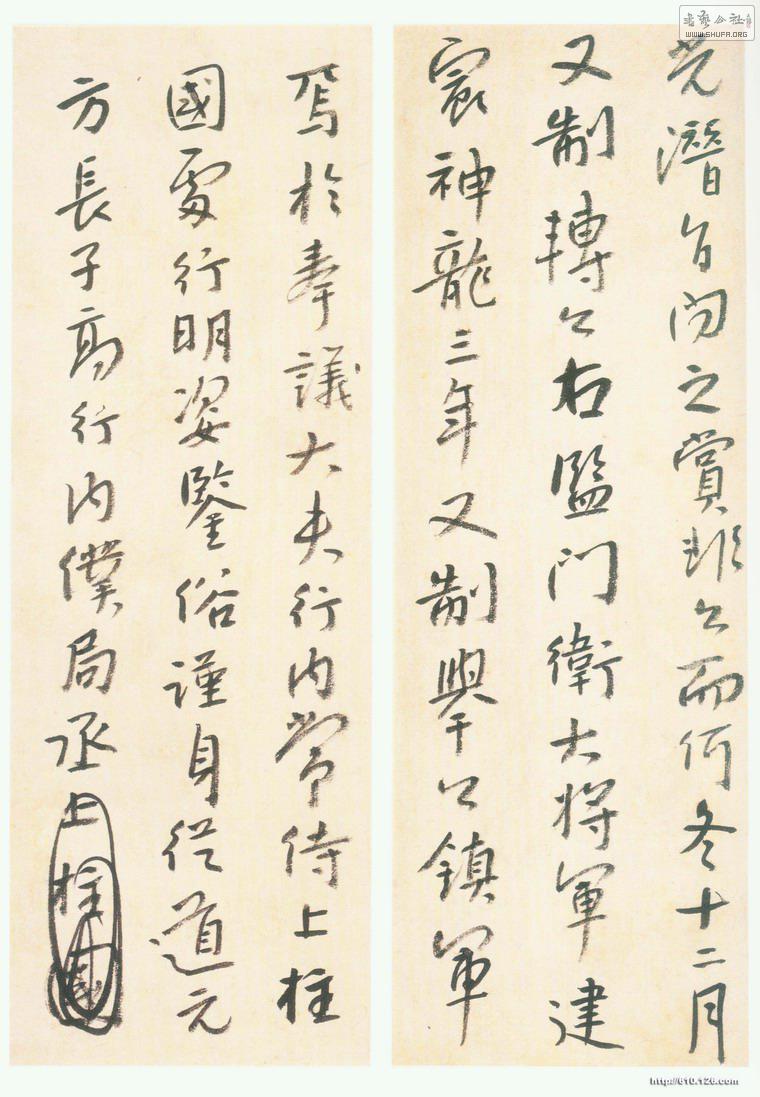 書藝公社
WWW.SHUFA.ORG
光潛旨問之賞非公而何冬十二月
又制轉公右監門衛大將軍建
宸神龍三年又制舉公鎮軍
焉於奉議大夫行內常侍上柱
國處行明姿鑒俗謹身從道元
方長子高行內僕局丞上柱國
http://610.126.com